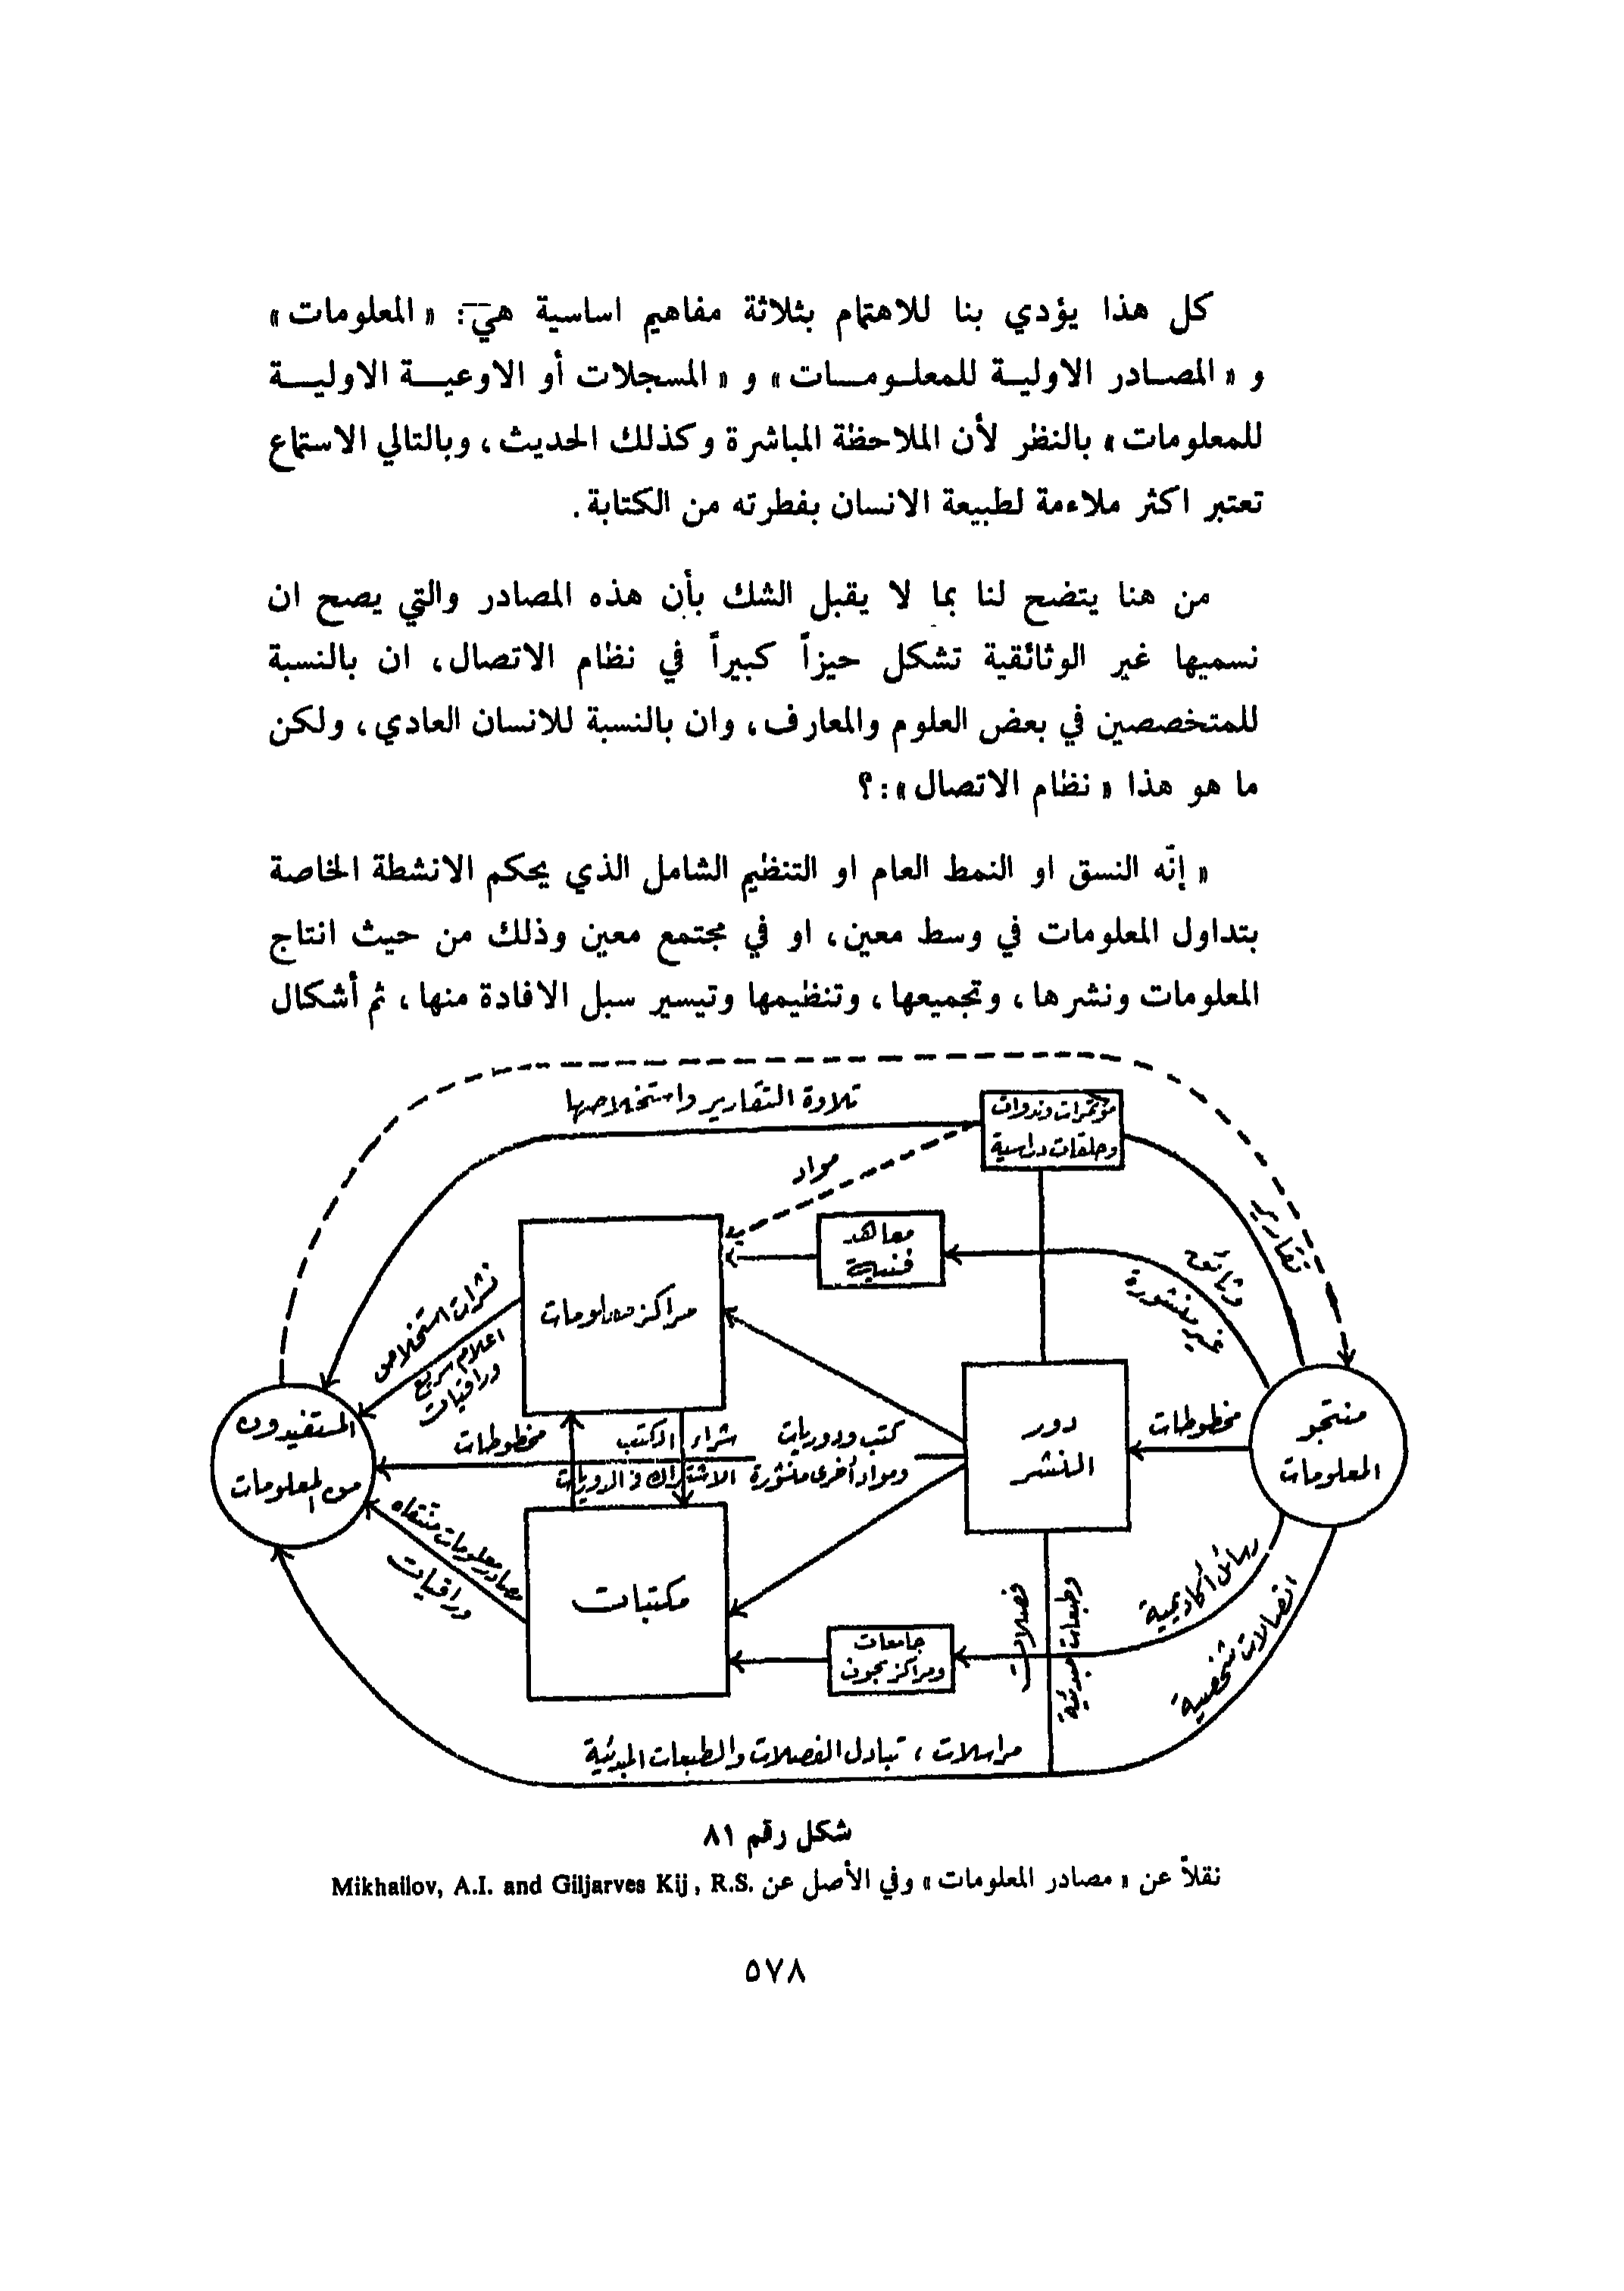 كل هذا يؤدي بنا للاهتمام بثلاثة مفاهيم اساسية هي: «المعلومات»
و «المصادر الاولية للمعلومات» و «المسجلات أو الاوعية الاولية
للمعلومات» بالنظر لأن الملاحظة المباشرة وكذلك الحديث، وبالتالي الاستماع
تعتبر اكثر ملاءمة لطبيعة الانسان بفطرته من الكتابة.
من هنا يتضح لنا بما لا يقبل الشك بأن هذه المصادر والتي يصح ان
نسميها غير الوثائقية تشكل حيزاً كبيراً في نظام الاتصال، ان بالنسبة
للمتخصصين في بعض العلوم والمعارف، وان بالنسبة للانسان العادي، ولكن
ما هو هذا «نظام الاتصال»:؟
«إنّه النسق او النمط العام او التنظيم الشامل الذي يحكم الانشطة الخاصة
بتداول المعلومات في وسط معين، او في مجتمع معين وذلك من حيث انتاج
المعلومات ونشرها، وتجميعها، وتنظيمها وتيسير سبل الافادة منها، ثم أشكال
تلاوة التقارير واستخلاصها
مؤتمرات وندوات
وحلقات دراسية
مواد
تقارير
معاهد
فنية
وثائق
غير منشورة
مراكز معلومات
نشرات استخلاص
اعلام سريع
وراقيات
منتجو
المعلومات
مخطوطات
دور
النشر
كتب ودوريات
ومواد أخرى منشورة
شراء الكتب
الاشتراك في الدوريات
مخطوطات
المستفيدون
من المعلومات
مصادر معلومات منتقاه
وراقيات
مكتبات
جامعات
ومراكز بحوث
فصلات
وطبعات مبدئية
رسائل أكاديمية
اتصالات شخصية
مراسلات، تبادل الفصلات والطبعات المبدئية
شكل رقم ٨١
نقلاً عن «مصادر المعلومات» وفي الأصل عن Mikhailov, A.I. and Giljarves Kij, R.S.
٥٧٨